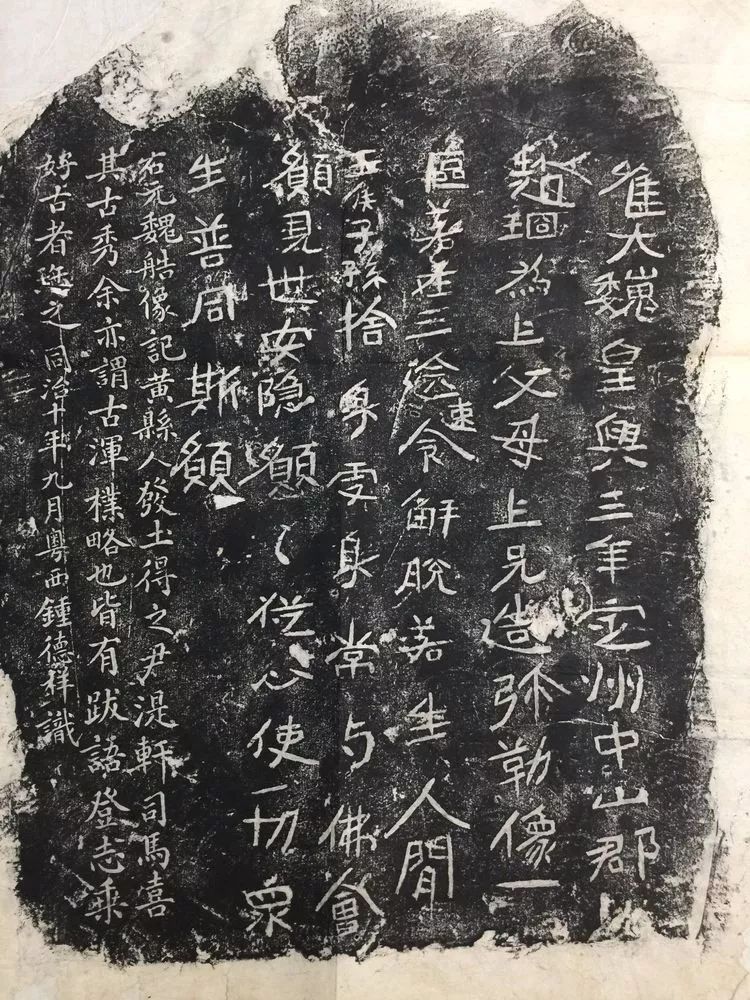 隹大魏皇興三年定州中山郡
趙珚為亡父母亡兄造弥勒像一
區若在三途速令解脫若生人間
王侯子孫捨身受身常与佛會
願見世安隱願〻從心使一切眾
生普同斯願
右元魏艁像記黃縣人發土得之尹湜軒司馬喜
其古秀余亦謂古渾樸略也皆有跋語登志乘
好古者之同治十年九月粵西鍾德祥識